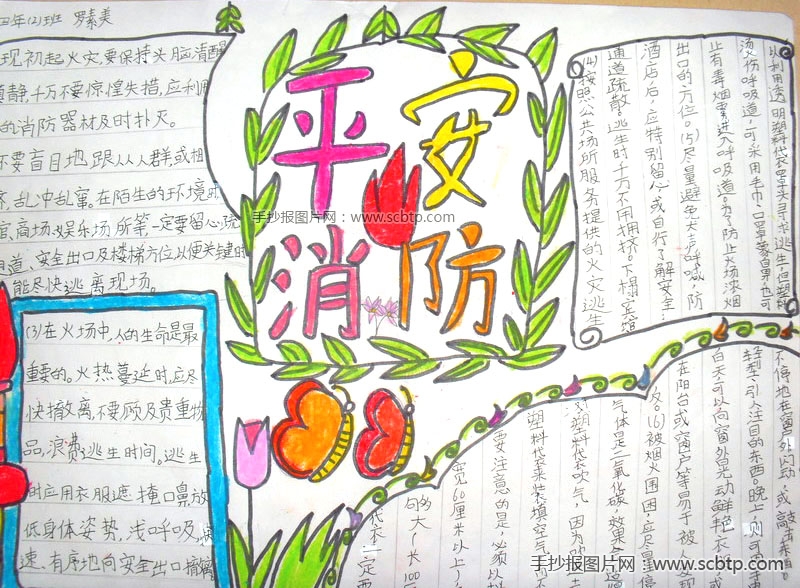 四年(2)班 罗素美
现初起火灾,要保持头脑清醒
镇静,千万不要惊惶失措,应利用
的消防器材及时扑灭。
不要盲目地跟从人群或相
乱冲乱窜。在陌生的环境
商场、娱乐场所等一定要留心疏
道、安全出口及楼梯方位以便关键时
能尽快逃离现场。
平安
消防
手抄报图片网:www.scbtp.com
(3)在火场中,人的生命是最
重要的。火热蔓延时,应尽
快撤离,不要顾及贵重物
品,浪费逃生时间。逃生
时应用衣服遮掩口鼻放
低身体姿势,浅呼吸,
速、有序地向安全出口撤离
(4)按照公共场所服务提供的火灾逃生
通道疏散。逃生时千万不用拥挤。下榻宾馆
酒店后,应特别留心或自行了解安全
出口的方位。(5)尽量避免大声呼喊,防
止有毒烟雾进入呼吸道。为了防止火场浓烟
烫伤呼吸道,可采用毛巾、口罩蒙鼻也可
以利用透明塑料袋罩头寻求逃生,但塑料
代衣一定要
的大(长100
宽60厘米以上)
要注意的是,必须以
塑料袋来装填空气
塑料袋吹气,因为吹
气体是二氧化碳,效果会适
反。(6)被烟火围困,应尽量
在阳台或窗户等易于被人
白天可以向窗外晃动鲜艳衣
轻型、引人注目的东西。晚上,则可
不停地在窗户外闪动或敲击东西。
手抄报图片网:www.scbtp.com